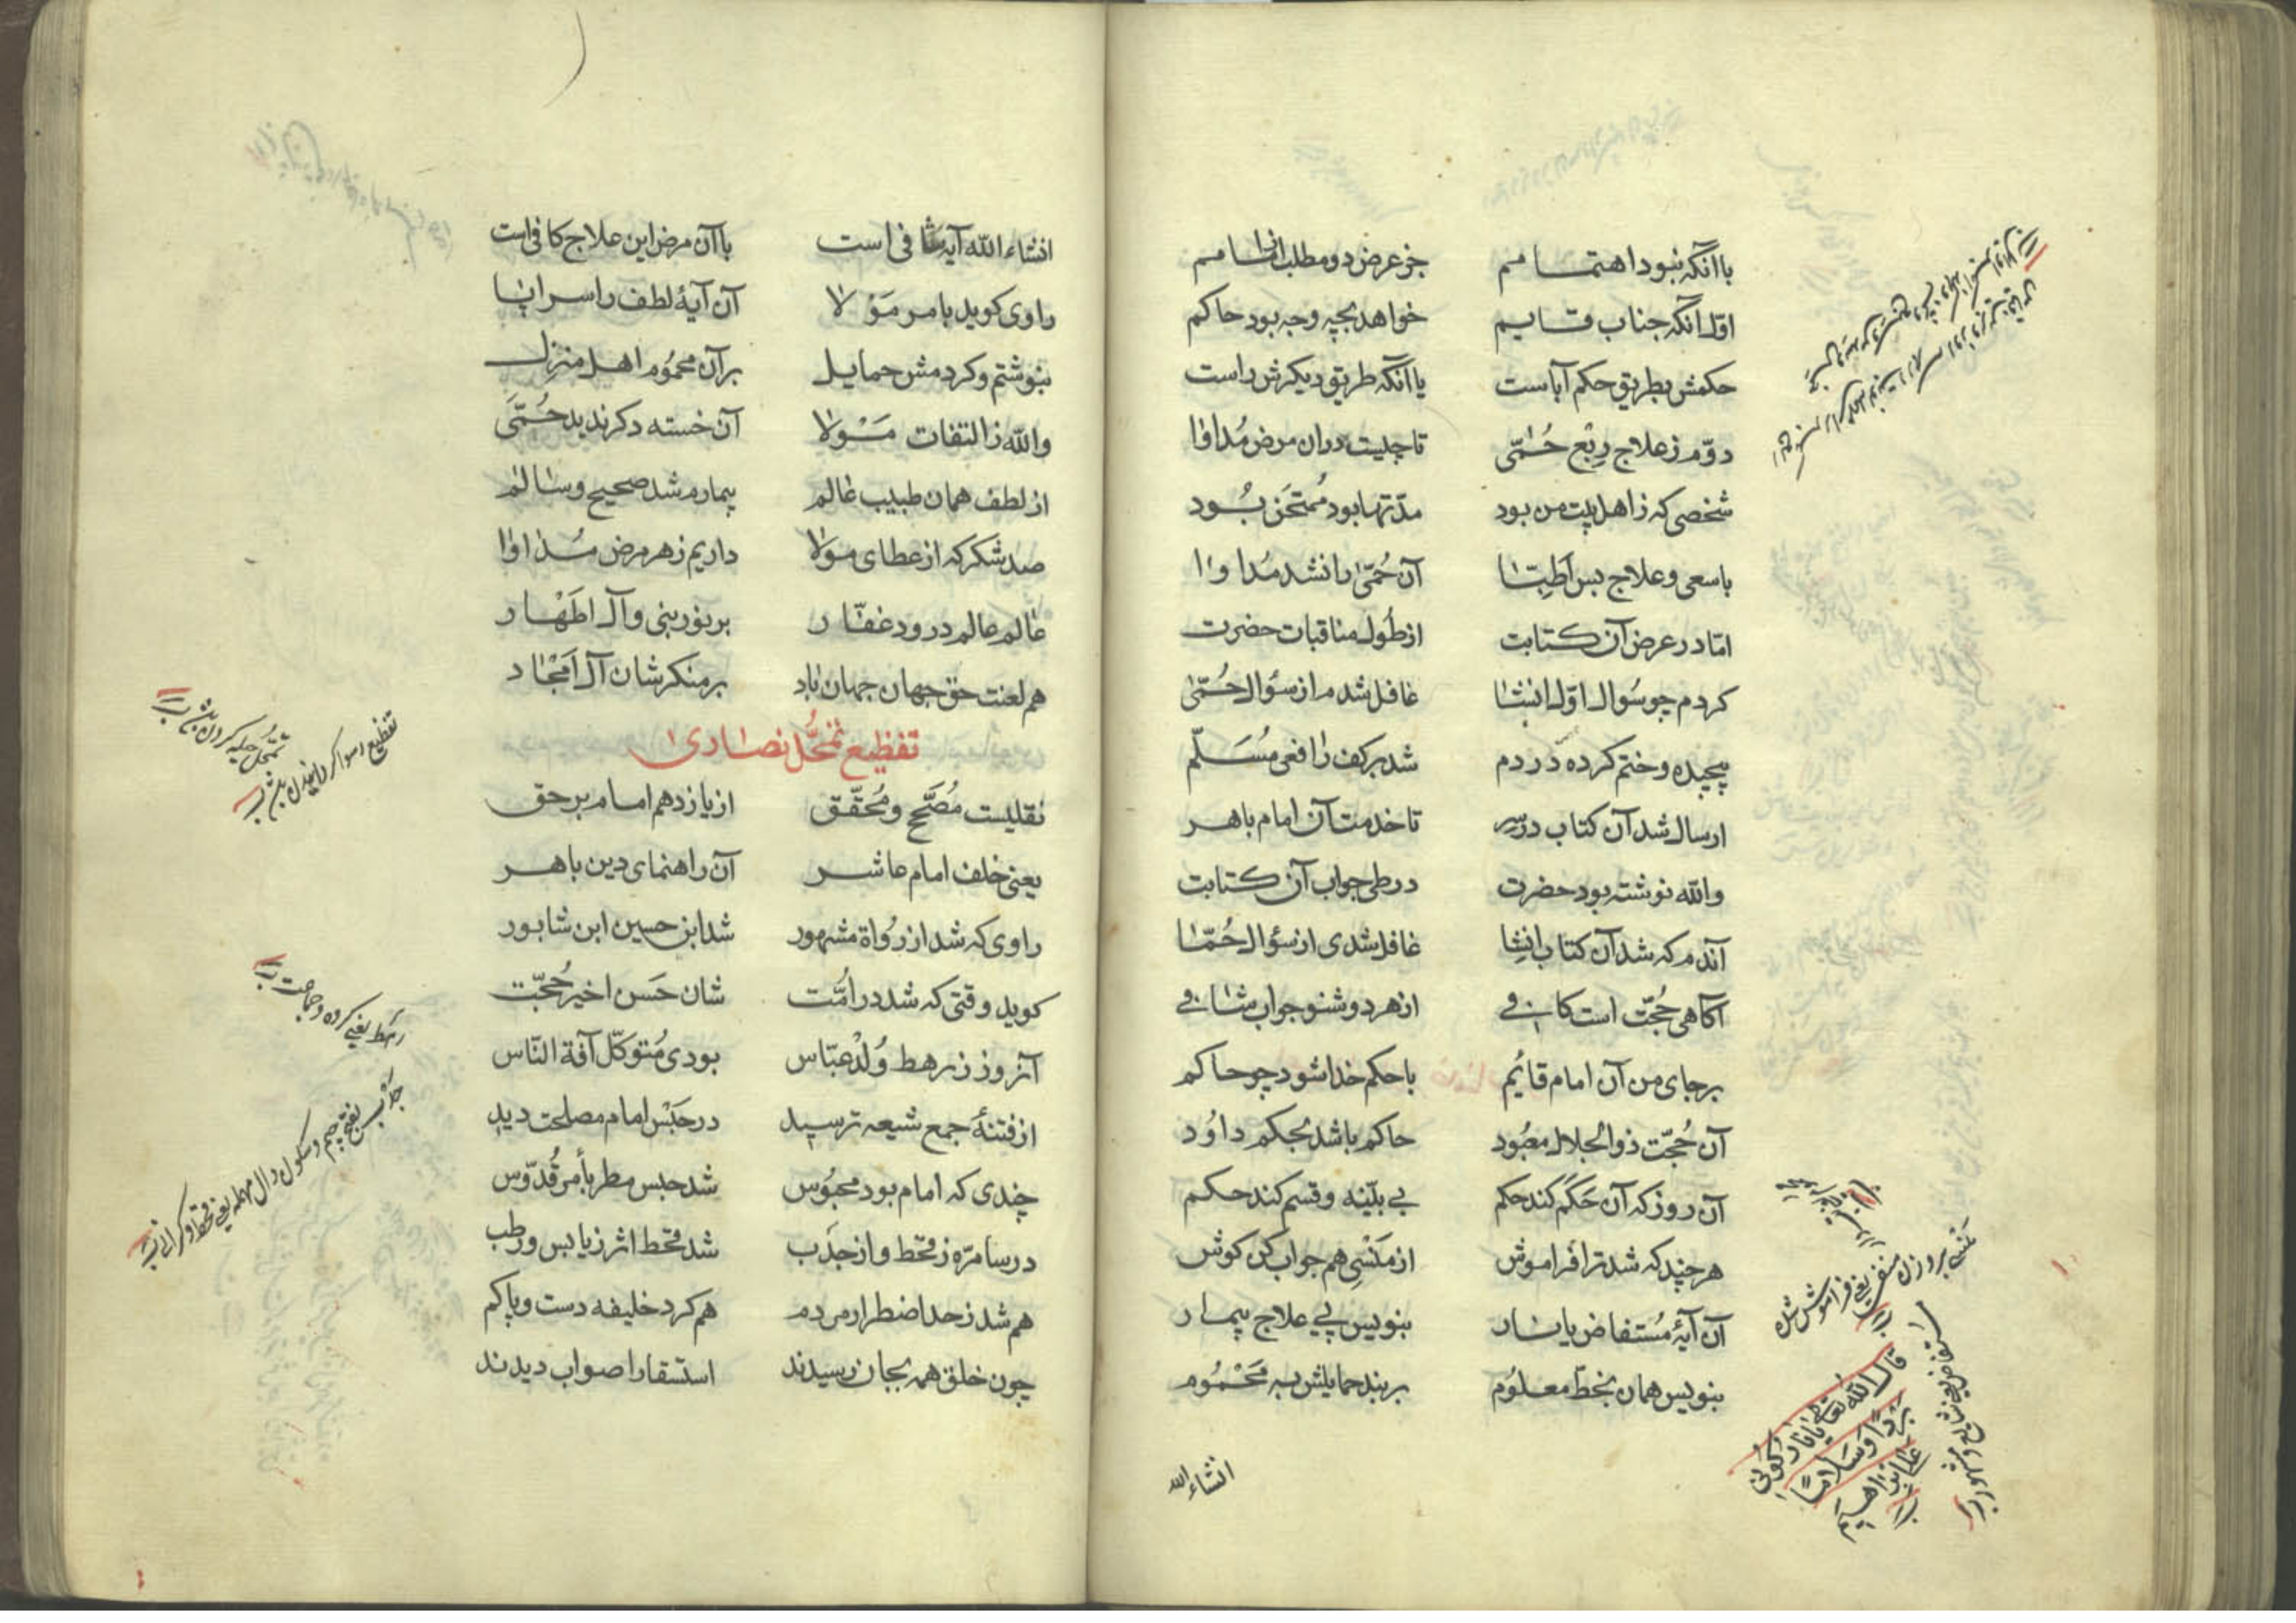 با آنکه نبود اهتمامم جز عرض دو مطلب از امامم
اوّل آنکه جناب قایم خواهد بچه وجه بود حاکم
حکمش بطریق حکم آباست یا آنکه طریق دیکرش راست
دوّم ز علاج رِبْع حُمّی تا چلیت دران مرض مُداوا
شخصی که ز اهل بیت من بود مدّتها بود مُمتَحَن بُود
با سعی و علاج بس اَطِبّا آن حُمّیٰ را نشد مُداوا
امّا در عرض آن کتابت از طُول مناقبات حضرت
کردم چو سُوال اوّل انشا غافل شدم از سؤال حُمّیٰ
پیچیده و ختم کرده دردم شد بر کف رافعی مُسَلّم
ارسال شد آن کتاب تا خدمت آن امام باهر
والله نوشته بود حضرت در طی جواب آن کتابت
آندم که شد آن کتاب اِنشا غافل شدی از سؤال حُمّا
آکاهی حُجّت است کافی از هر دو شنو جواب شافی
بر جای من آن امام قائم با حکم خدا شود چو حاکم
آن حُجّت ذوالجلال معبُود حاکم باشد بحکم داوُد
آن روز که آن حَکَم کند حکم بی بیّنه و قسم کند حکم
هر چند که شد ترا فراموش از مَنْسِی هم جواب کن کوش
آن آیهٔ مُستفاض یا نار بنویس پی علاج بیمار
بنویس همان بخطّ معلوُم بر بند حمایلش به مَحْمُوم
انشاء الله
مَنْسِی بر وزن یعنی فراموش شده
استفاض یعنی شایع و مشهور
قال الله تعالی یا نار کُونی
بَرْداً وَسَلاماً
علی ابراهیم
انشاء الله آیه شافی است با آن مرض این علاج کافی است
راوی کوید بامر مَوْلا آن آیهٔ لطف را سراپا
بنوشتم و کردمش حمایل بر آن محمُوم اهل منزل
والله ز التفات مَوْلا آن خسته دکر ندید حُمّیَ
از لطف همان طبیب عالم بیمارم شد صحیح و سالم
صد شکر که از عطای مولا داریم ز هر مرض مُداوا
عالم عالم درود غفّار بر نور نبی و آل اطَهْار
هم لعنت حق جهان جهان باد بر منکرشان آل اَمْجٰاد
تفظیع تمَحُّل نصاریٰ
نقلیست مُصَحَّح و مُحَقّق از یازدهم امام بر حق
یعنی خلف امام عاشر آن راهنمای دین باهر
راوی که شد از رُواة مشهور شد ابن حسین ابن شابور
کوید وقتی که شد در اُمّت شان حَسَن اخیر حُجّت
آنروز ز رهط وُلْد عبّاس بودی مُتوکّل آفة النّاس
از فتنهٔ جمع شیعه ترسید در حَبْس امام مصلحت دید
چندی که امام بود محبُوس شد حبس مطر بأمر قُدّوس
در سامرّه ز قحط و از جَدْب شد قحط اثر ز یابس و رطب
هم شد ز حد اضطرار مردم هم کرد خلیفه دست و پا کم
چون خلق همه بجان رسیدند استسقا را صواب دیدند
تفظیع رسوا کردن
تمَحُّل حیله کردن
رهط یعنی کروه و جماعت
جَدْب بفتح جیم و سکون دال مهمله یعنی قحط و کرانی